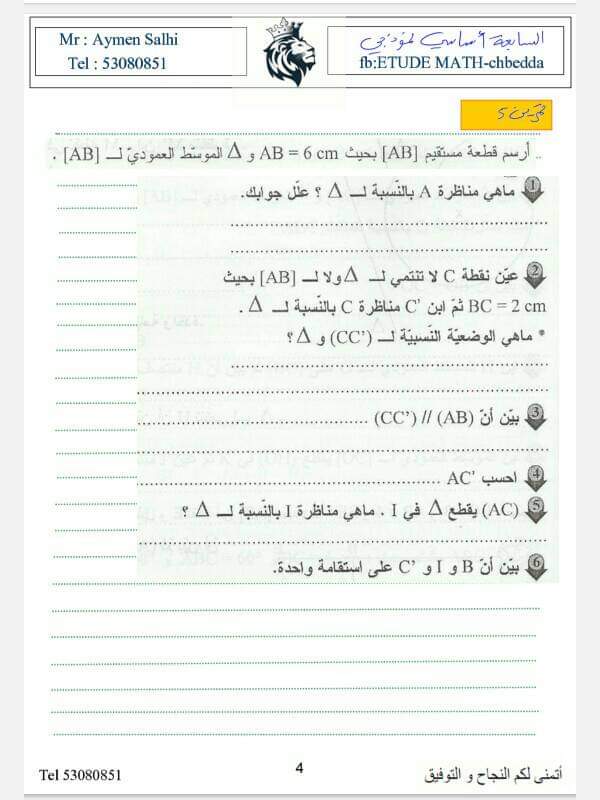 Mr : Aymen Salhi
Tel : 53080851
السابعة أساسي نموذجي
fb:ETUDE MATH-chbedda
تمرين 5
.. أرسم قطعة مستقيم [AB] بحيث AB = 6 cm و Δ الموسّط العموديّ لـ [AB] .
1 ماهي مناظرة A بالنّسبة لـ Δ ؟ علّل جوابك.
2 عيّن نقطة C لا تنتمي لـ Δ ولا لـ [AB] بحيث
BC = 2 cm ثمّ ابن C' مناظرة C بالنّسبة لـ Δ .
* ماهي الوضعيّة النّسبيّة لـ (CC') و Δ ؟
3 بيّن أنّ (AB) // (CC')
4 احسب AC'
5 (AC) يقطع Δ في I . ماهي مناظرة I بالنّسبة لـ Δ ؟
6 بيّن أنّ B و I و C' على استقامة واحدة.
Tel 53080851
4
أتمنى لكم النجاح و التوفيق